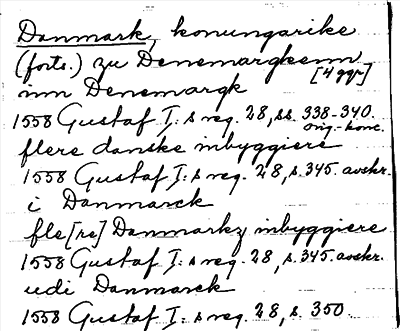 Danmark, konungarike
(forts.) zu Denemargkenn
[4 ggr]
inn Denemargk
1558 Gustaf I: s reg. 28, ss. 338-340.
orig.-konc.
flere danske inbyggiere
1558 Gustaf I: s reg. 28, s. 345. avskr.
i Danmarck
fle[re] Danmarkz inbyggiere
1558 Gustaf I: s reg. 28, s. 345. avskr.
udi Danmarck
1558 Gustaf I: s reg. 28, s. 350